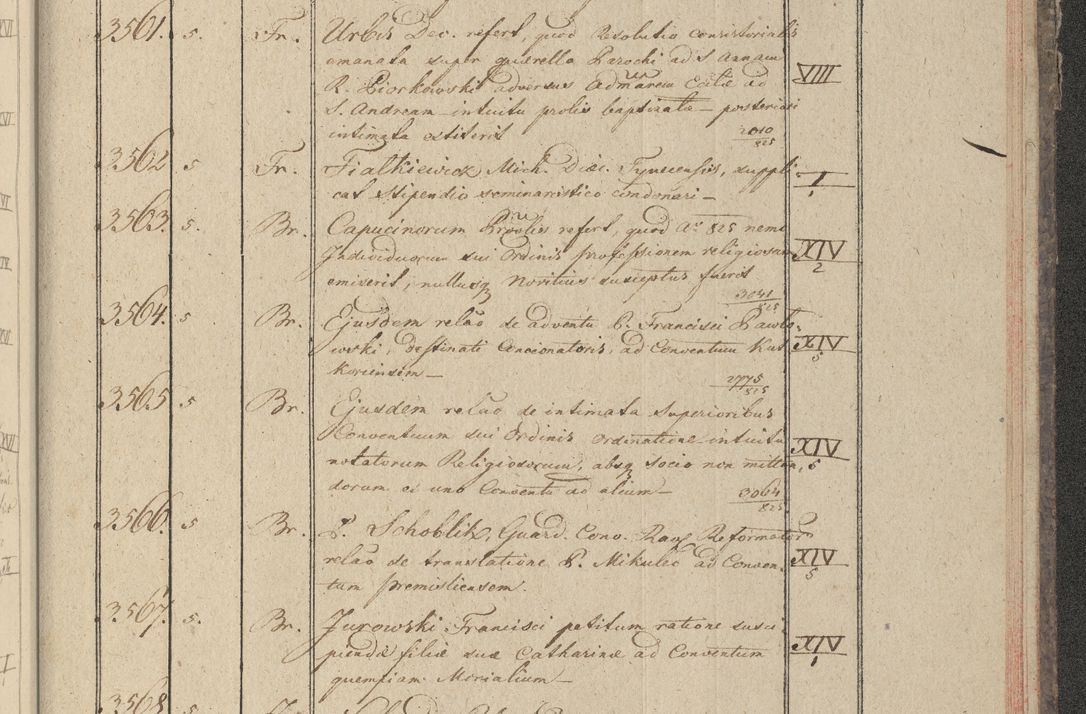 3561. 5. Fr. Urbis Dec. refert, quod Resolutio consistorialis
emanata super querella Parochi ad S Annam VIII
R. Piorkowski adversus Admarem Cttae ad
S. Andream intuitu prolis baptizatae – posteriori
intimata extiterit 2010/825
3562 5 Fr. Fialkiewicz Mich. Diac. Tynecensis, suppli I/1
cat stipendio seminaristico condonari –
3563. 5. Br. Capucinorum Provlis refert, quod Ao 825 nemo
Individuorum sui Ordinis professionem religiosam XIV/2
emiserit, nullusq Novitius susceptus fuerit
3041/825
3564. 5 Br. Ejusdem relao de adventu P. Francisci Pawlo-
wski, destinati Concionatoris, ad Conventum Kut XIV/5
Koriensem – 2775/825
3565 5 Br. Ejusdem relao de intimata Superioribus
Conventuum sui Ordinis ordinatione intuitu XIV/5
notatorum Religiosorum, absq socio non mitten,
dorum ex uno Conventu ad alium – 3064/825
3566. 5 Br. P. Schoblik, Guard. Conv. Rav Reformator
relao de translatione P. Mikulec ad Conven- XIV/5
tum premisliensem.
3567. 5. Br. Jurowski Francisci petitum ratione susci
piendae filiae suae Catharinae ad Conventum XIV/1
quempiam Monialium –
3568 5